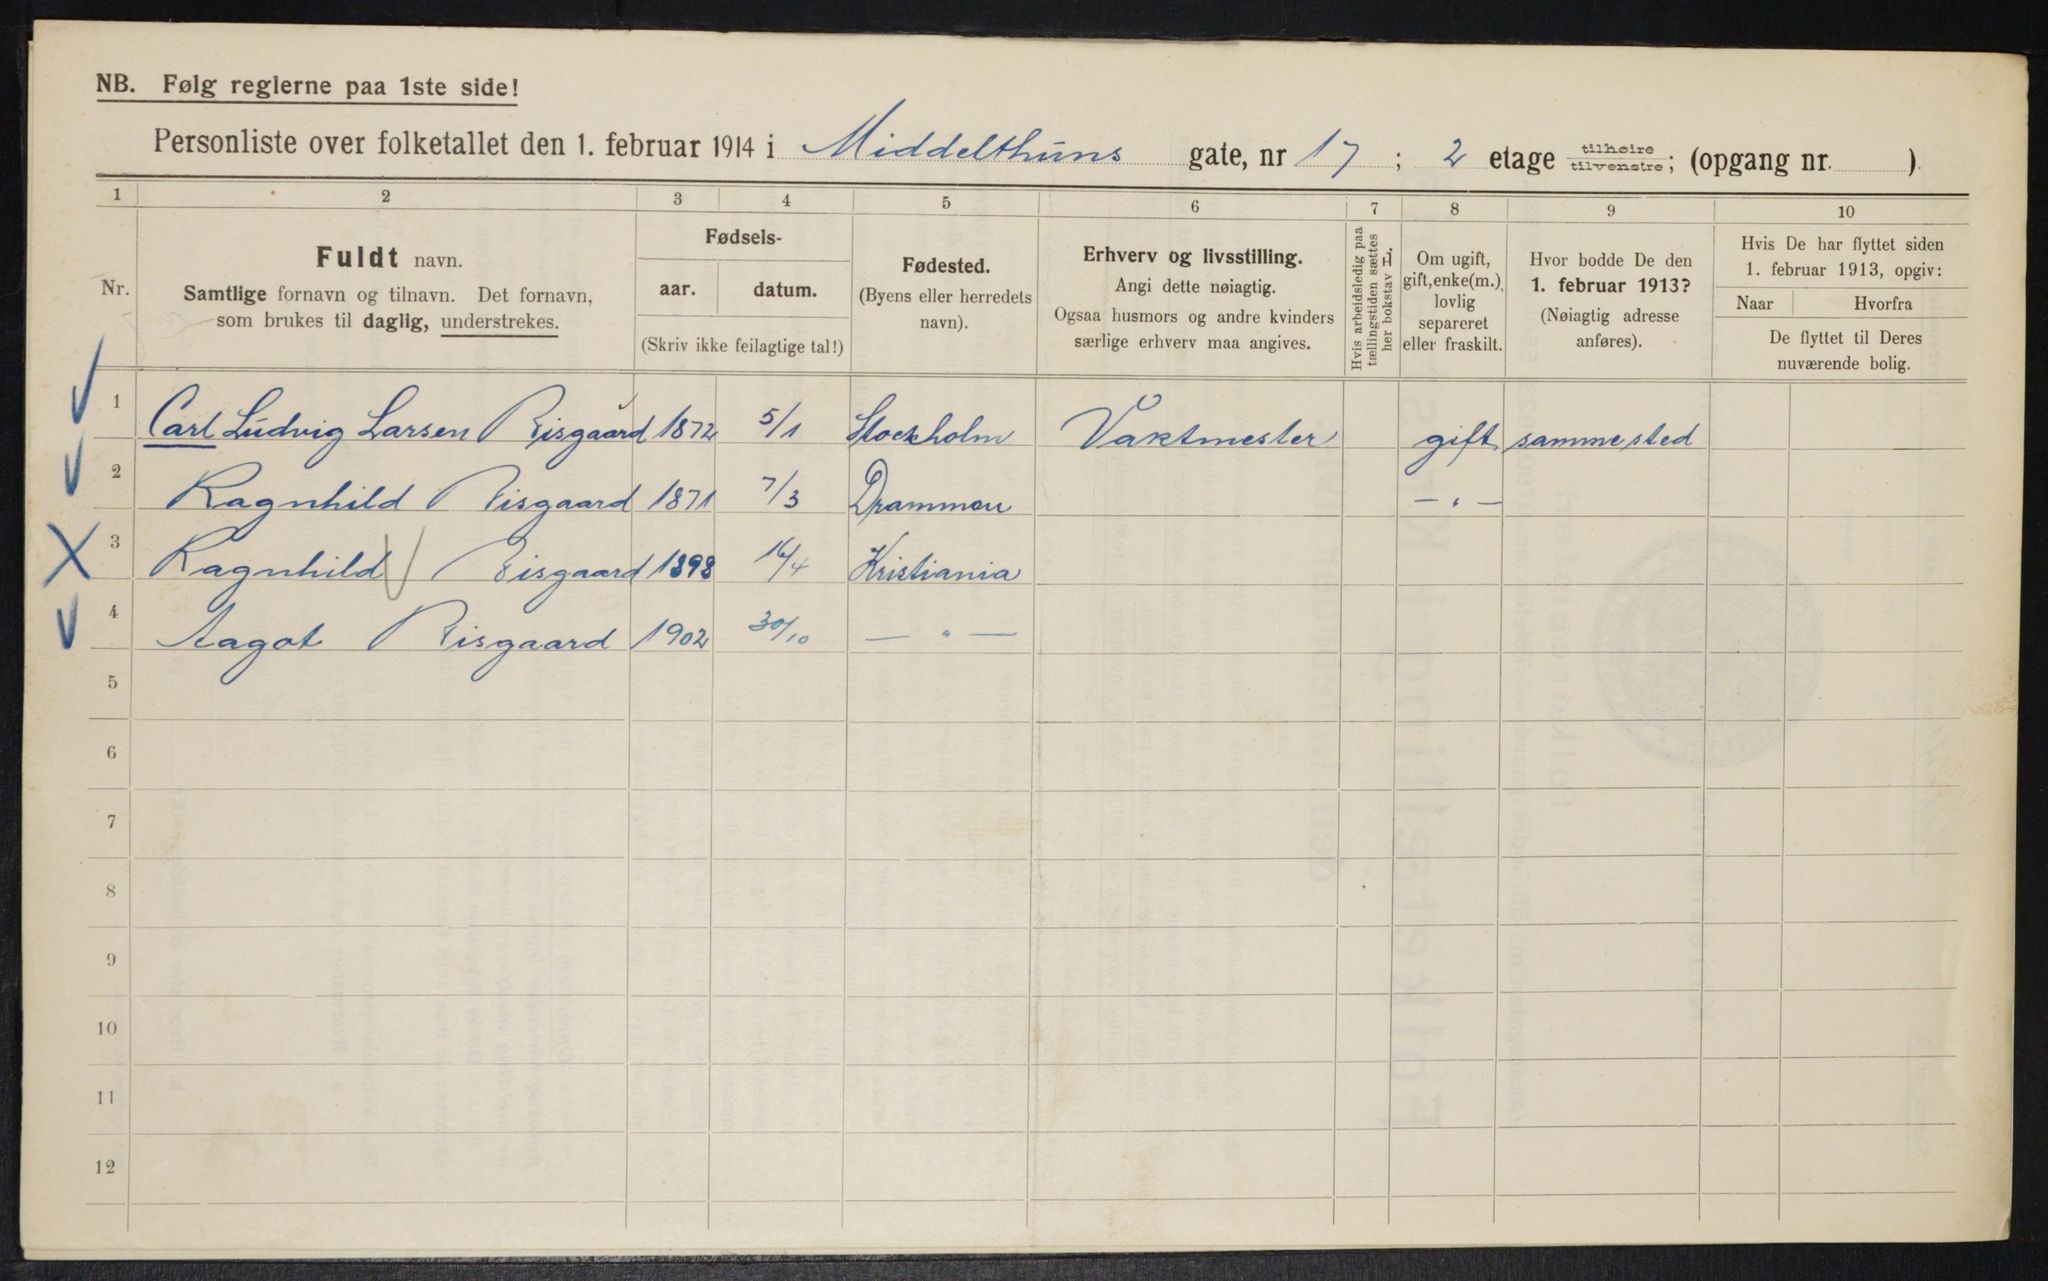 NB. Følg reglerne paa 1ste side!
Personliste over folketallet den 1. februar 1914 i Middelthuns gate, nr 17; 2 etage tilhøire/tilvenstre; (opgang nr. ).
1 2 3 4 5 6 7 8 9 10
Nr.
Fuldt navn.
Samtlige fornavn og tilnavn. Det fornavn,
som brukes til daglig, understrekes.
Fødsels-
aar. datum.
(Skriv ikke feilagtige tal!)
Fødested.
(Byens eller herredets
navn).
Erhverv og livsstilling.
Angi dette nøiagtig.
Ogsaa husmors og andre kvinders
særlige erhverv maa angives.
Hvis arbeidsledig paa
tællingstiden sættes
her bokstav L.
Om ugift,
gift, enke(m.),
lovlig
separeret
eller fraskilt.
Hvor bodde De den
1. februar 1913?
(Nøiagtig adresse
anføres).
Hvis De har flyttet siden
1. februar 1913, opgiv:
Naar Hvorfra
De flyttet til Deres
nuværende bolig.
1 Carl Ludvig Larsen Risgaard 1872 5/1 Stockholm Vaktmester gift sammested
2 Ragnhild Risgaard 1871 7/3 Drammen — " —
3 Ragnhild Risgaard 1898 16/4 Kristiania
4 Aagot Risgaard 1902 30/10 — " —
5
6
7
8
9
10
11
12